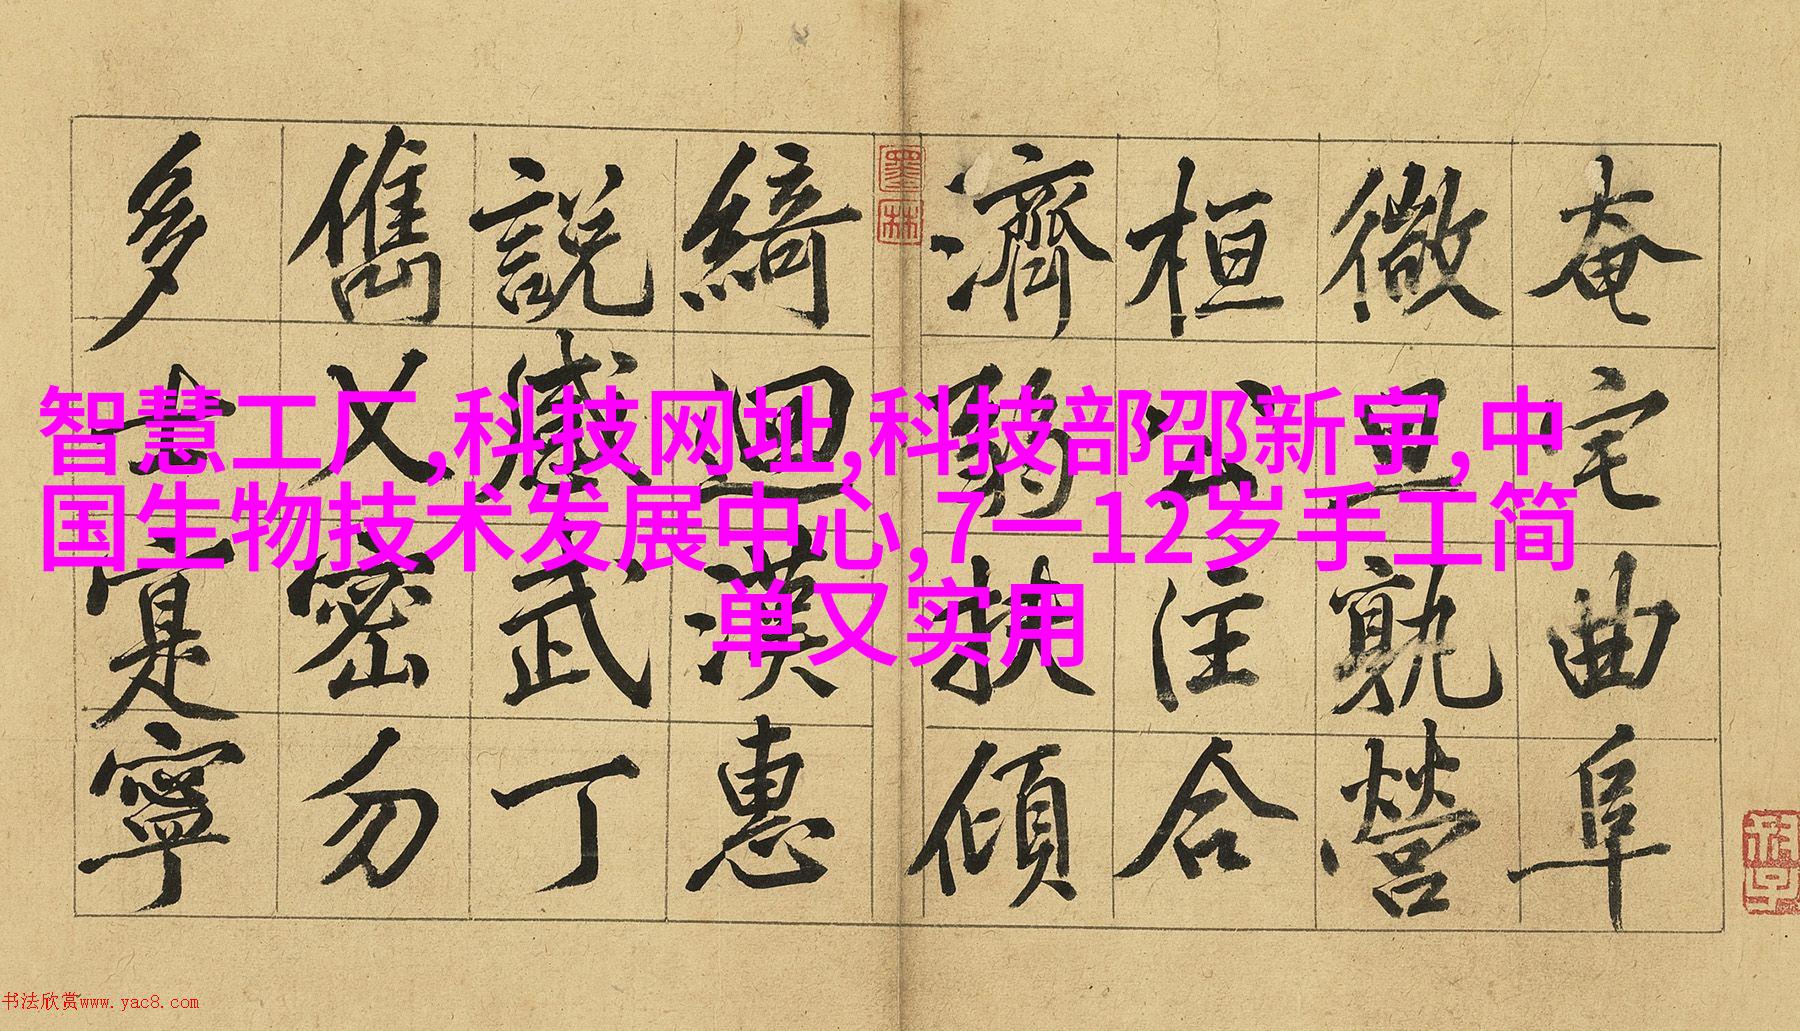 智慧工厂,科技网址,科技部邵新宇,中
国生物技术发展中心,7一12岁手工简
单又实用
奄宅曲阜
微旦孰營
桓公合
濟弱扶傾
綺迴漢惠
說感武丁
儁乂密勿
多士寔寧
墨林
书法欣赏www.yac8.com